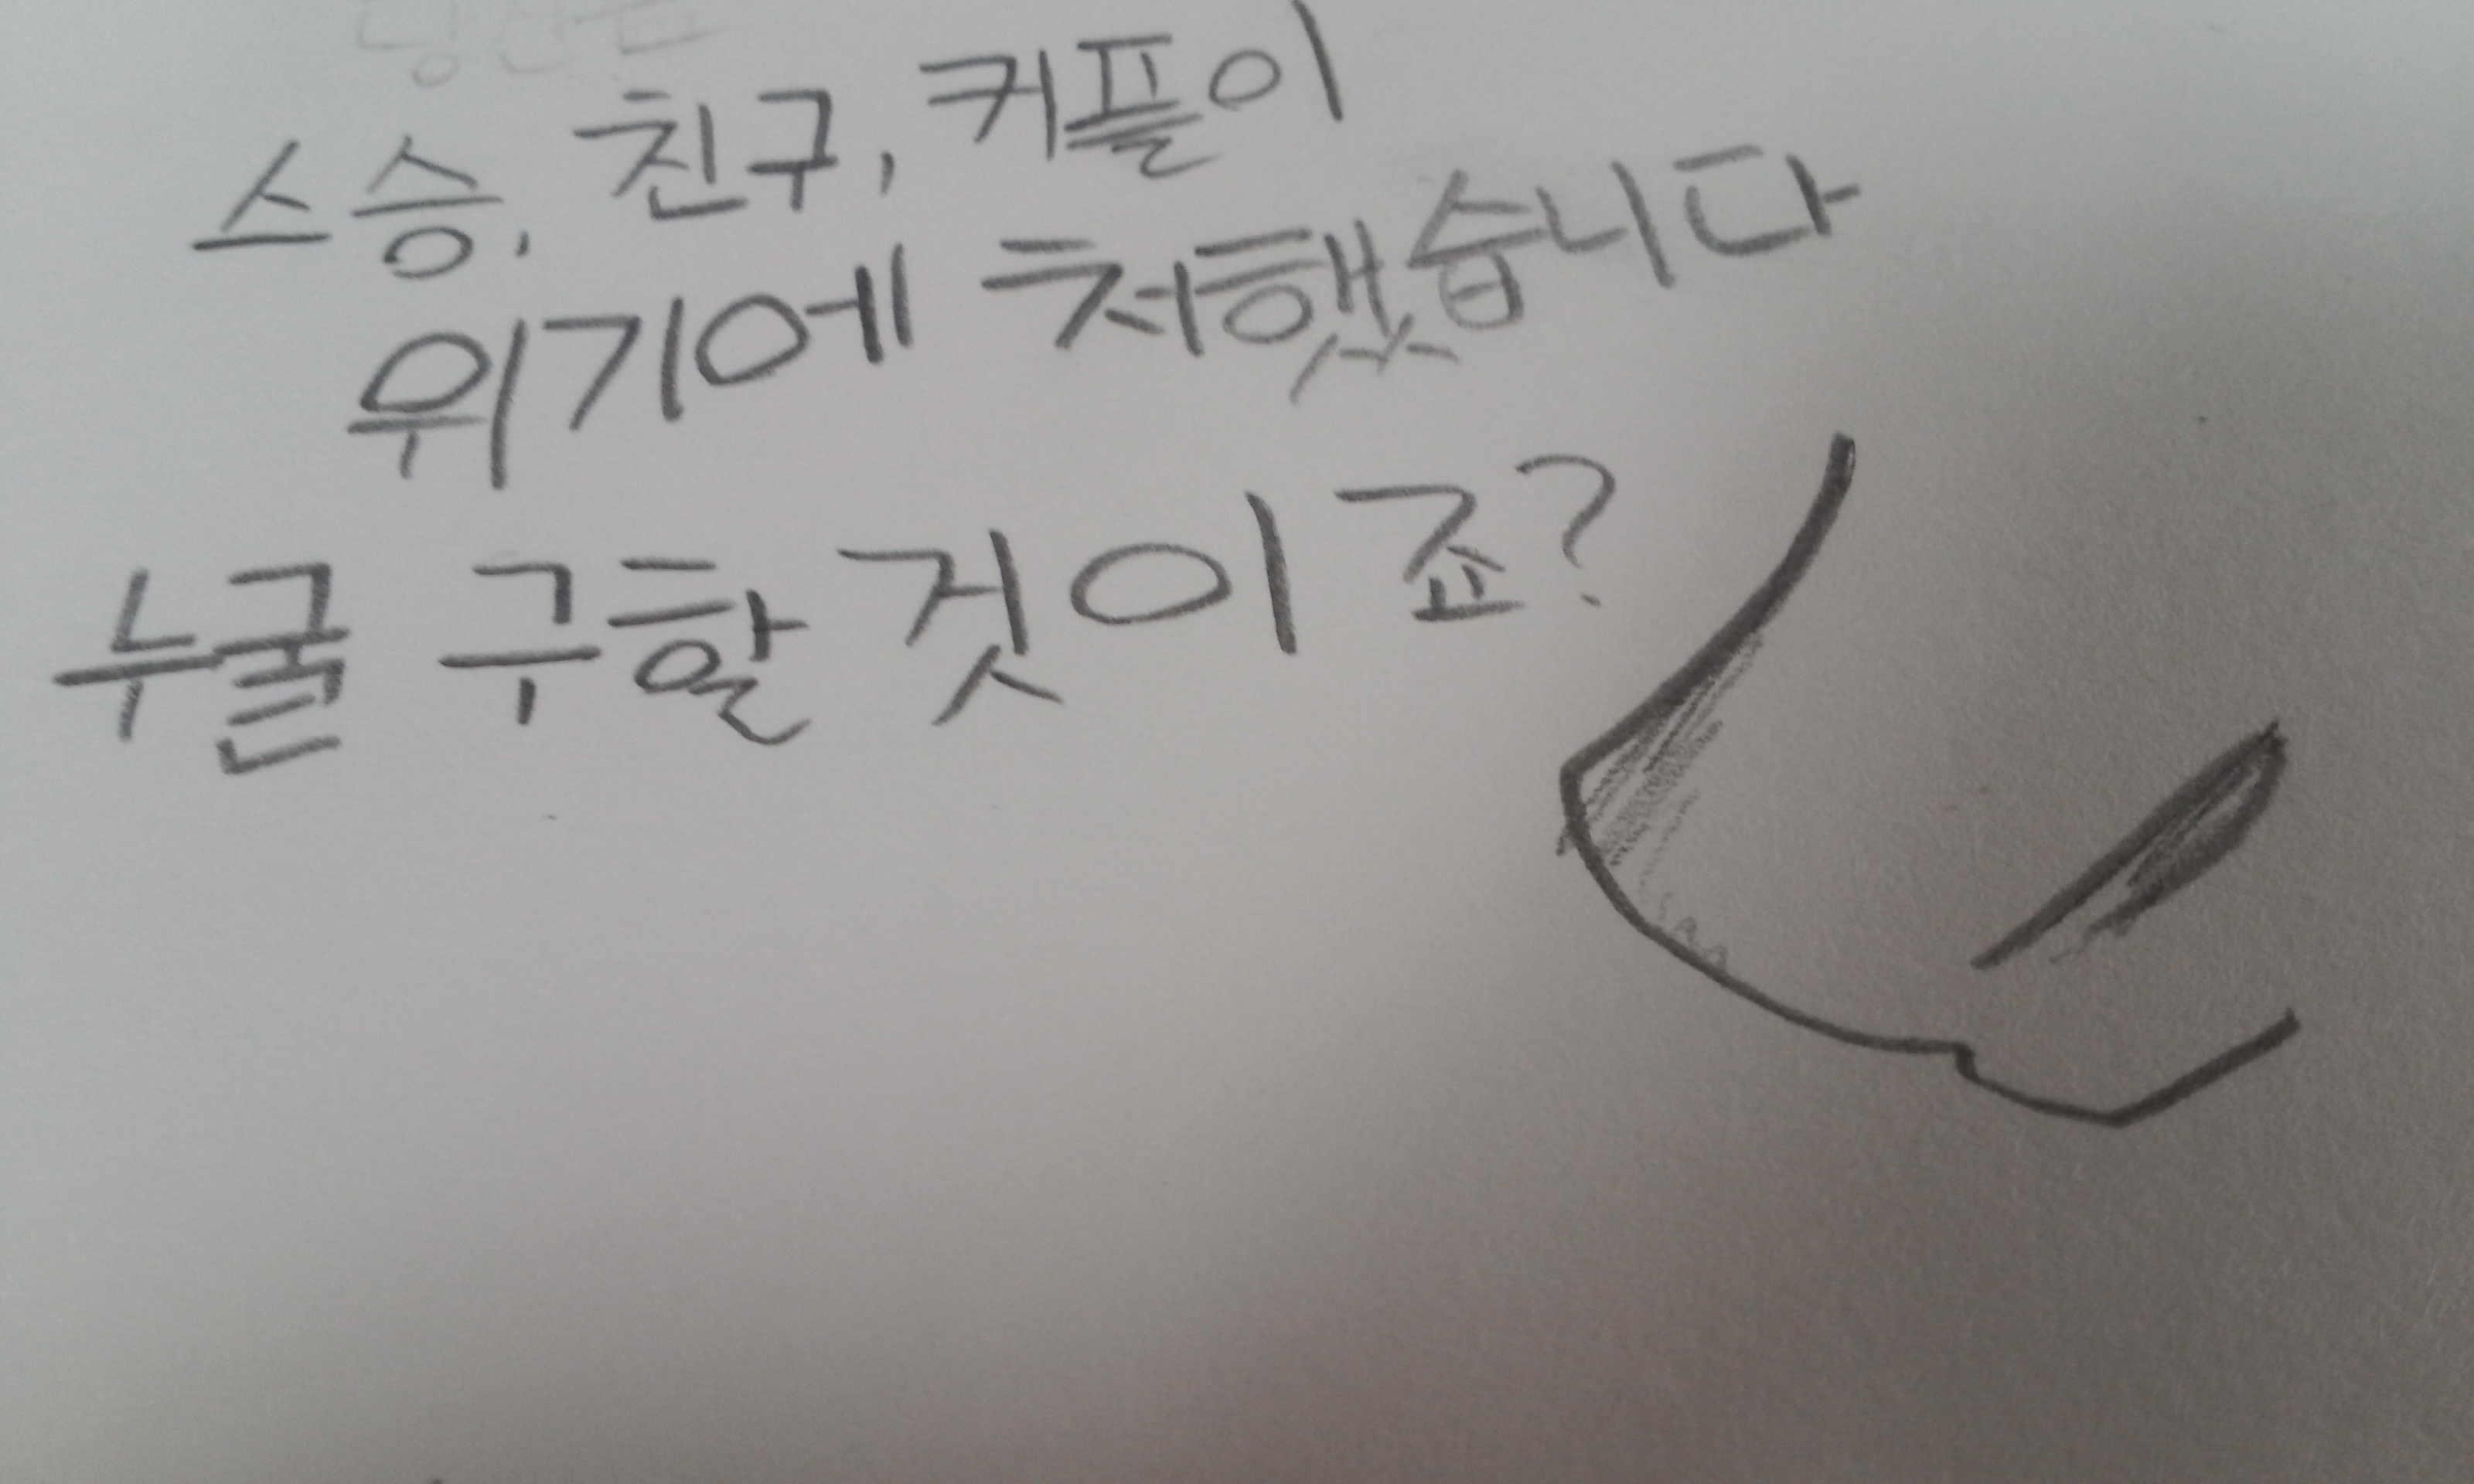 스승, 친구, 커플이
위기에 처했습니다
누굴 구할 것이죠?